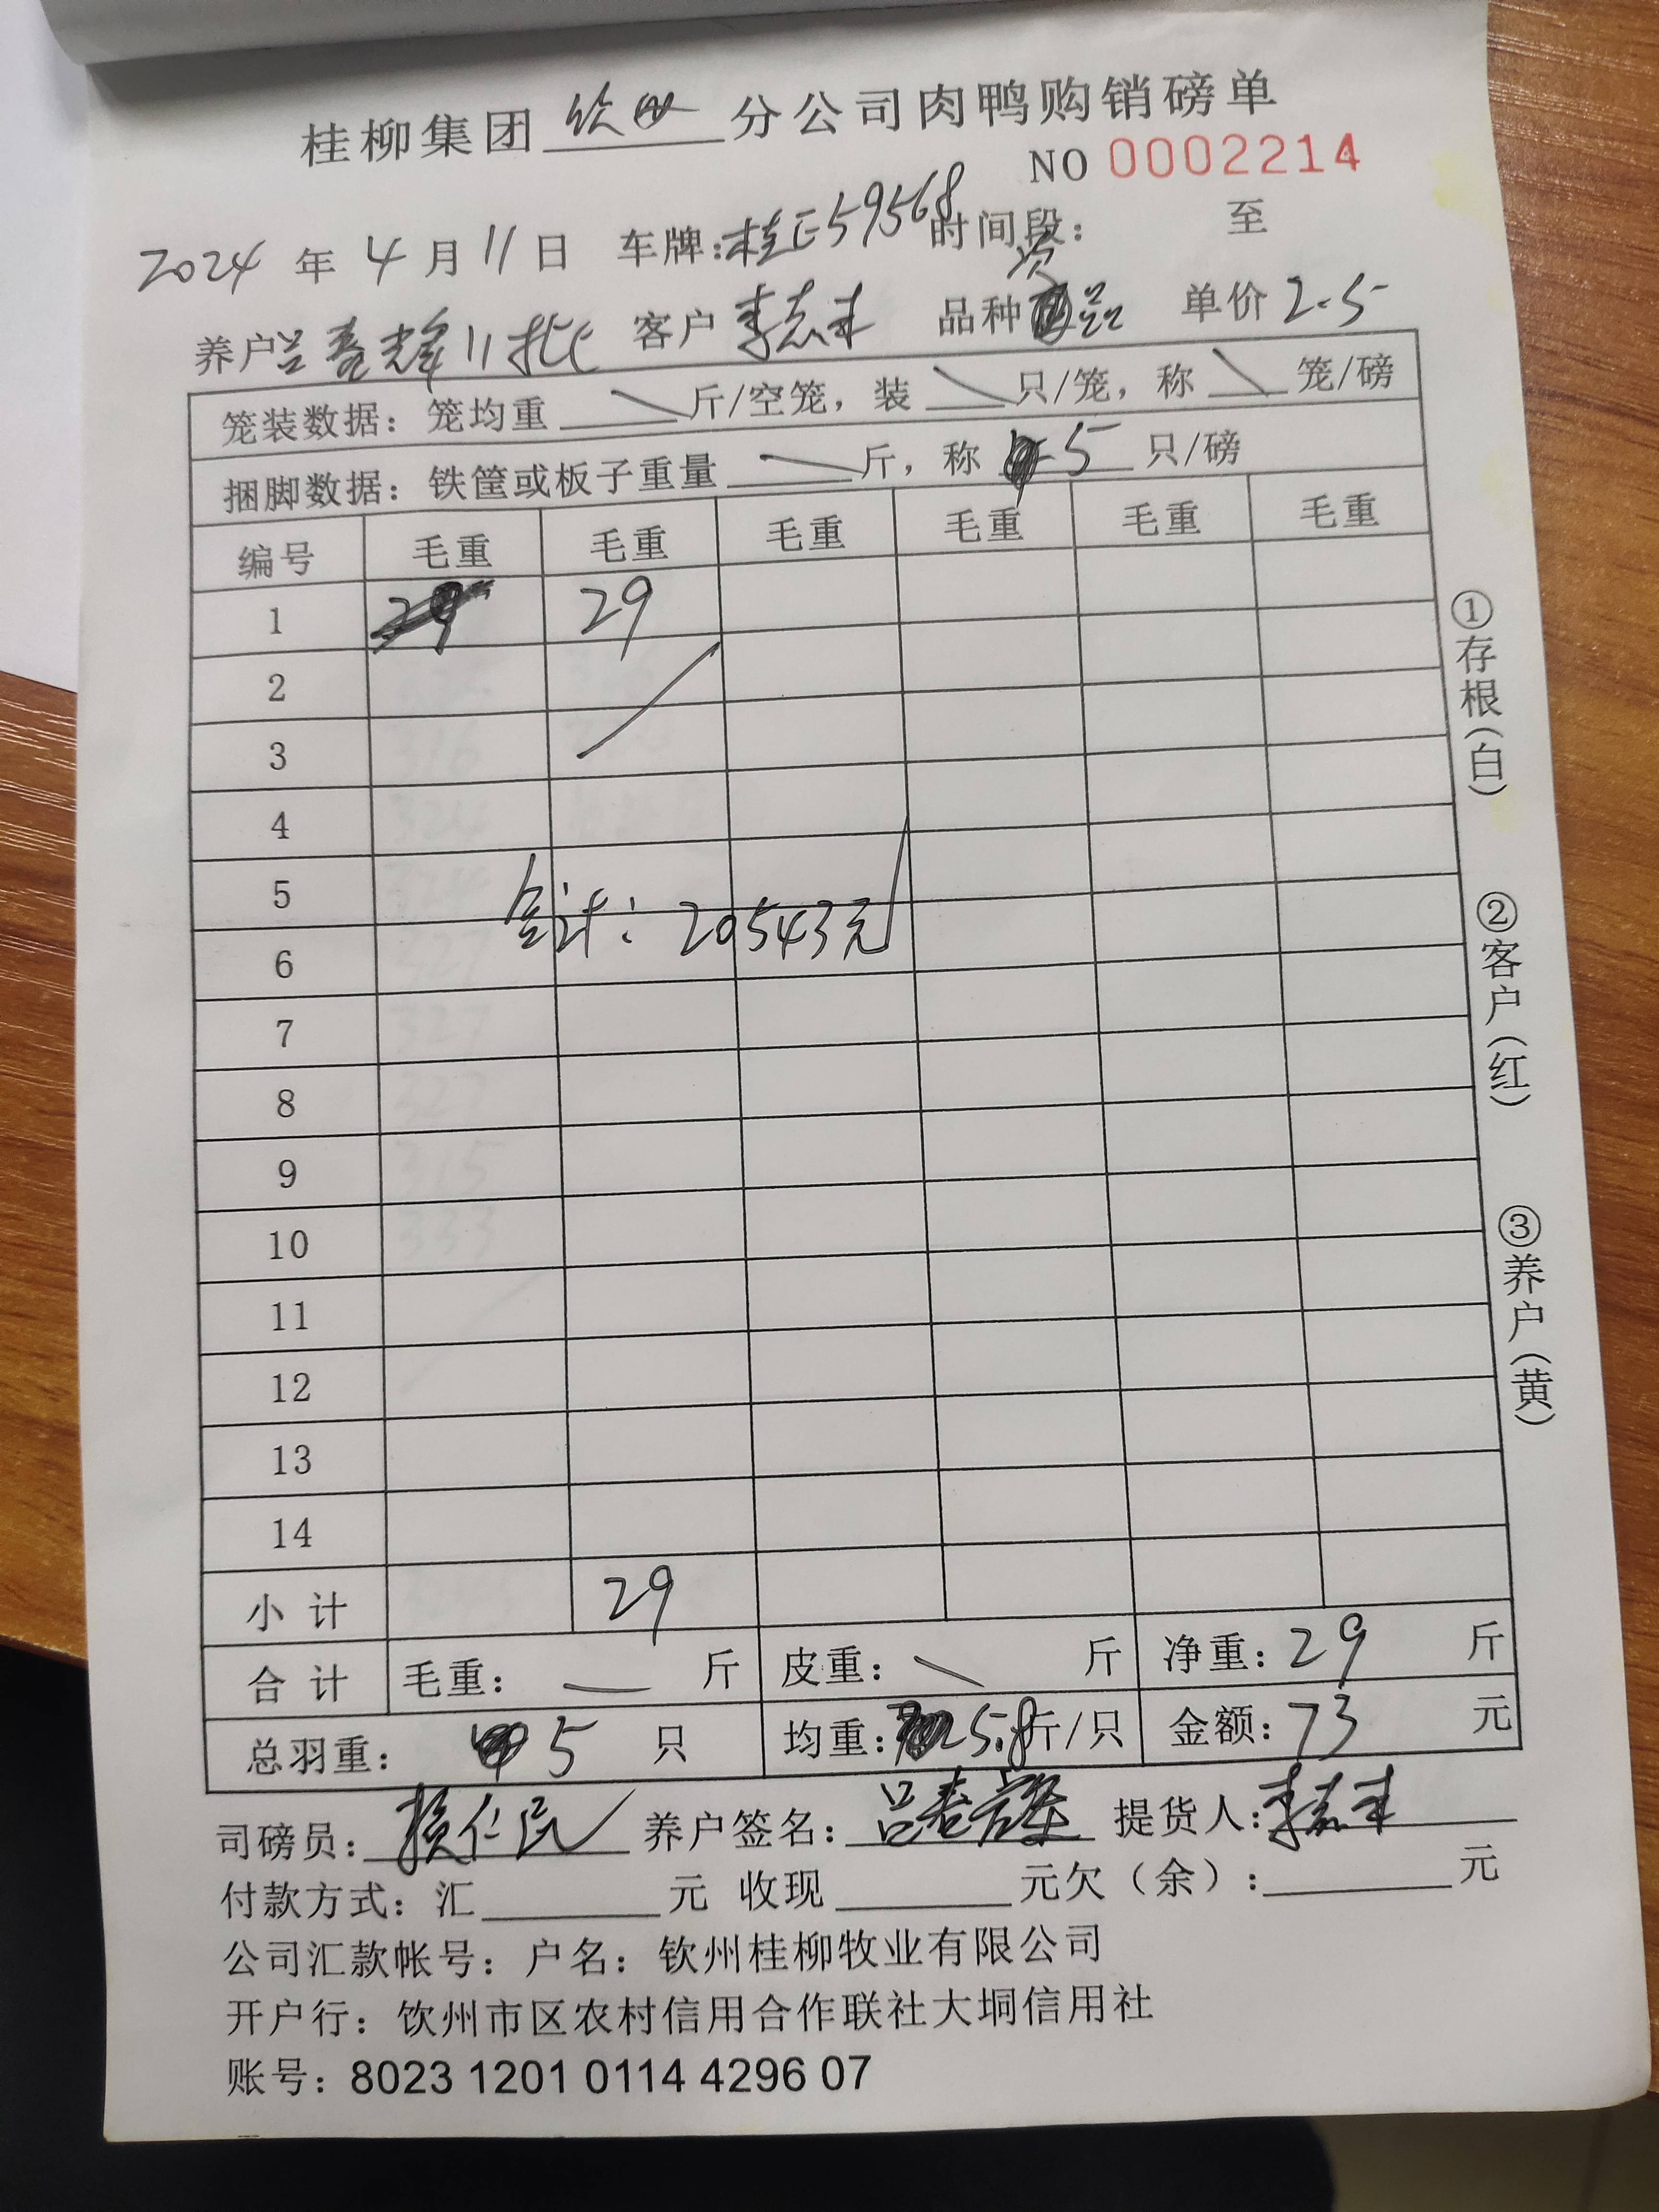 桂柳集团钦州分公司肉鸭购销磅单
NO 0002214
2024 年 4 月 11 日 车牌:桂E59568 时间段: 至
养户吕春辉11批 客户李志丰 品种 单价2.5
笼装数据: 笼均重 斤/空笼, 装 只/笼, 称 笼/磅
捆脚数据: 铁筐或板子重量 斤, 称 5 只/磅
编号 毛重 毛重 毛重 毛重 毛重 毛重
1 29 29
2
3
4
5
合计: 20543元
6
7
8
9
10
11
12
13
14
小计 29
合计 毛重: 斤 皮重: 斤 净重: 29 斤
总羽重: 5 只 均重: 5.8斤/只 金额: 73 元
司磅员: 仁民 养户签名: 吕春辉 提货人: 李志丰
付款方式: 汇 元 收现 元欠(余): 元
公司汇款帐号: 户名: 钦州桂柳牧业有限公司
开户行: 钦州市区农村信用合作联社大垌信用社
账号: 8023 1201 0114 4296 07
①存根(白)
②客户(红)
③养户(黄)